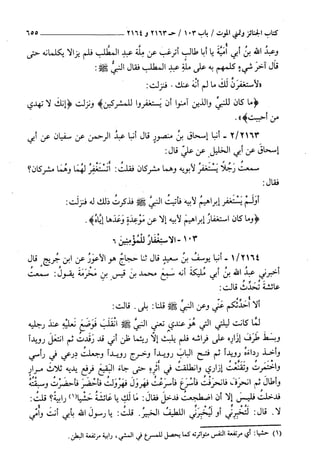 كتاب الجنائز ولني الموت / باب ١٠٣ / حـ ٢١٦٣ و ٢١٦٤ ٦٥٥
وعبدُ الله بنُ أبي أُمَيَّةَ يا أبا طالبٍ أترغب عن مِلَّةِ عبدِ المطَّلب فلم يزالا يكلمانه حتى
قال آخر شيءٍ كلمهم به على ملةِ عبدِ المطلب فقال النبيُّ ﷺ:
«لأستغفرنَّ لكَ ما لم أُنْهَ عنك. فنزلت:
﴿ما كان للنبيِّ والذين آمنوا أن يَستغفروا للمشركين﴾ ونزلت ﴿إنكَ لا تهدي
من أحببت﴾».
٢/٢١٦٣ - أنبا إسحاق بنُ منصورٍ قال أنبا عبدُ الرحمن عن سفيانَ عن أبي
إسحاقَ عن أبي الخليلِ عن عليٍّ قال:
سمعتُ رجُلاً يَستغفرُ لأبويه وهما مشركان فقلتُ: أَتَستَغْفِرُ لَهُما وهُما مشركان؟
فقال:
أوَلَمْ يَستغفر إبراهيمُ لأبيه فأتيتُ النبيَّ ﷺ فذكرتُ ذلك له فنزلت:
﴿وما كان استغفارُ إبراهيمَ لأبيه إلا عن مَوْعِدَةٍ وَعَدَها إيَّاه﴾.
١٠٣ - الاستِغْفَارُ للمُؤْمِنِينَ ٦
١/٢١٦٤ - أنبا يوسفُ بنُ سعيدٍ قال ثنا حجاجٌ هو الأعورُ عن ابن جُريجٍ قال
أخبرني عبدُ الله بنُ أبي مُليكةَ أنه سمِعَ محمدَ بنَ قيسِ بنِ مَخْرَمَةَ يقولُ: سمعتُ
عائشةَ تُحدِّثُ قالت:
ألا أُحدِّثُكم عنِّي وعن النبيِّ ﷺ قلنا: بلى. قالت:
لمَّا كانت ليلتي التي هُوَ عندي تعني النبيَّ ﷺ انْقَلَبَ فوَضَعَ نعليهِ عندَ رجليهِ
وبسطَ طرفَ إزارِه على فراشه فلم يلبثْ إلا ريثما ظنَّ أنِّي قد رَقدتُ ثم انتعل رويداً
وأخذَ رداءَهُ رويداً ثم فتح البابَ رويداً وخرج رويداً وجعلتُ دِرعي في رأسي
واختمرتُ وتقنَّعتُ إزاري وانطلقتُ في أثَرِه حتى جاء البَقيعَ فرفع يديه ثلاثَ مرارٍ
وأطالَ ثم انحرفَ فانحرفتُ فأسرعَ فأسرعتُ فهرولَ فهرولتُ فأحْضَرَ فأحضرتُ وسبقتُه
فدخلتُ فليسَ إلا أن اضطجعتُ فدخل فقال: مَا لَكِ يا عائشةُ حَشْيا(١) رابيةً؟ قلتُ:
لا. قال: لَتُخبِرنِّي أو ليُخبِرَنِّي اللطيفُ الخبيرُ. قلتُ: يا رسولَ الله بأبي أنتَ وأُمِّي
(١) حشيا: أي مرتفعة النفس متواترته كما يحصل للمسرع في المشي، رابية مرتفعة البطن.